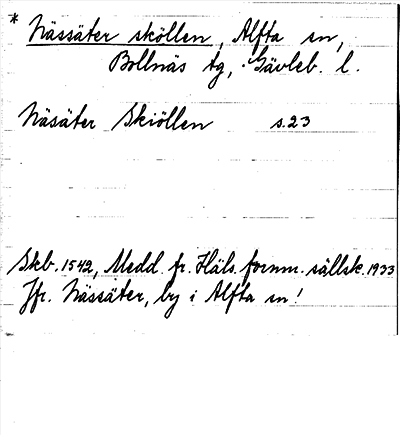 * Nässäter sköllen, Alfta sn,
Bollnäs tg, Gävleb. l.
Näsäter Skiöllen s. 23
Skb. 1542, Medd. fr. Häls. fornm. sällsk. 1933
Jfr. Nässäter, by i Alfta sn!